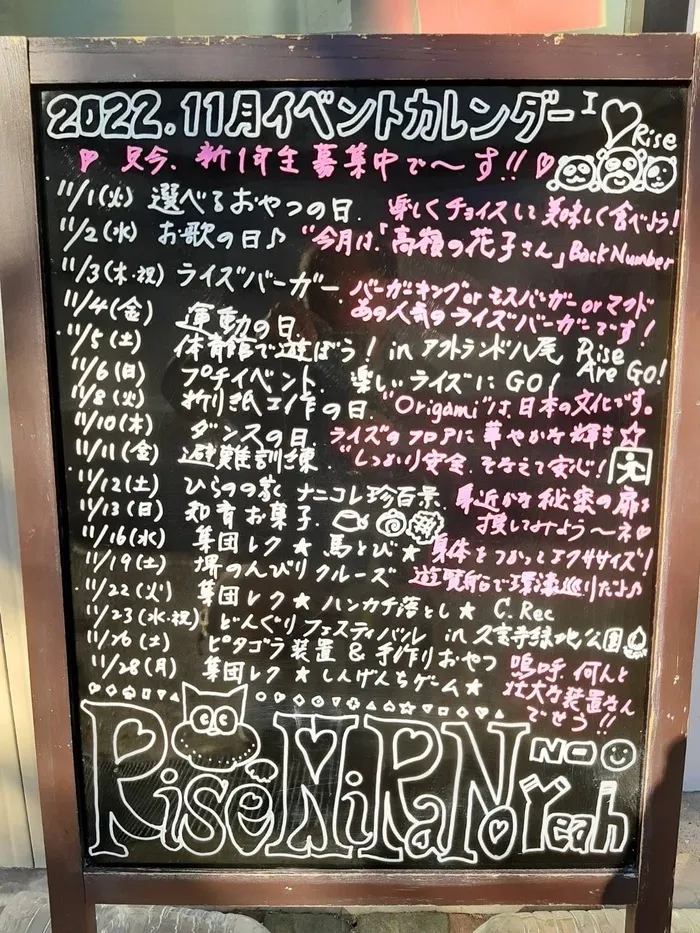 2022.11月イベントカレンダー I ♡ Rise
♡ 只今、新1年生募集中で〜す!! ♡
11/1(火) 選べるおやつの日. 楽しくチョイスして美味しく食べよう!
11/2(水) お歌の日♪ "今月は、「高嶺の花子さん」Back Number
11/3(木・祝) ライズバーガー バーガーキング or モスバーガー or マクド
あの人気のライズバーガーです!
11/4(金) 運動の日.
11/5(土) 体育館で遊ぼう! in アクトランド八尾 Rise
Are GO!
11/6(日) プチイベント. 楽しいライズにGO!
11/8(火) 折り紙工作の日. "Origami"は、日本の文化です。
11/10(木) ダンスの日. ライズのフロアに華やかな輝き☆
11/11(金) 避難訓練. "しっかり安全. そなえて安心!
11/12(土) ひらのの家 ナニコレ珍百景. 身近かな秘密の扉を
探してみよう〜ネ♡
11/13(日) 知育お菓子.
11/16(水) 集団レク ★ 馬とび ★ 身体をつかってエクササイズ!
11/19(土) 堺のんびりクルーズ 遊覧船で環濠巡りだよ♪
11/22(火) 集団レク ★ ハンカチ落とし ★ C.Rec
11/23(水・祝) どんぐりフェスティバル in 久宝寺緑地公園
11/26(土) ピタゴラ装置 & 手作りおやつ 嗚呼、何んと
壮大な装置なん
でせう!!
11/28(月) 集団レク ★ しんげんちゲーム ★
Rise HiRaNo NO
Yeah